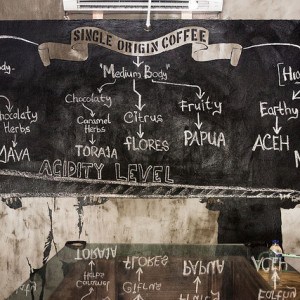 SINGLE ORIGIN COFFEE
Body"
"Medium Body"
Chocolaty
Herbs
JAVA
Chocolaty
Caramel
Herbs
TORAJA
Citrus
FLORES
Fruity
PAPUA
Earthy
ACEH
ACIDITY LEVEL